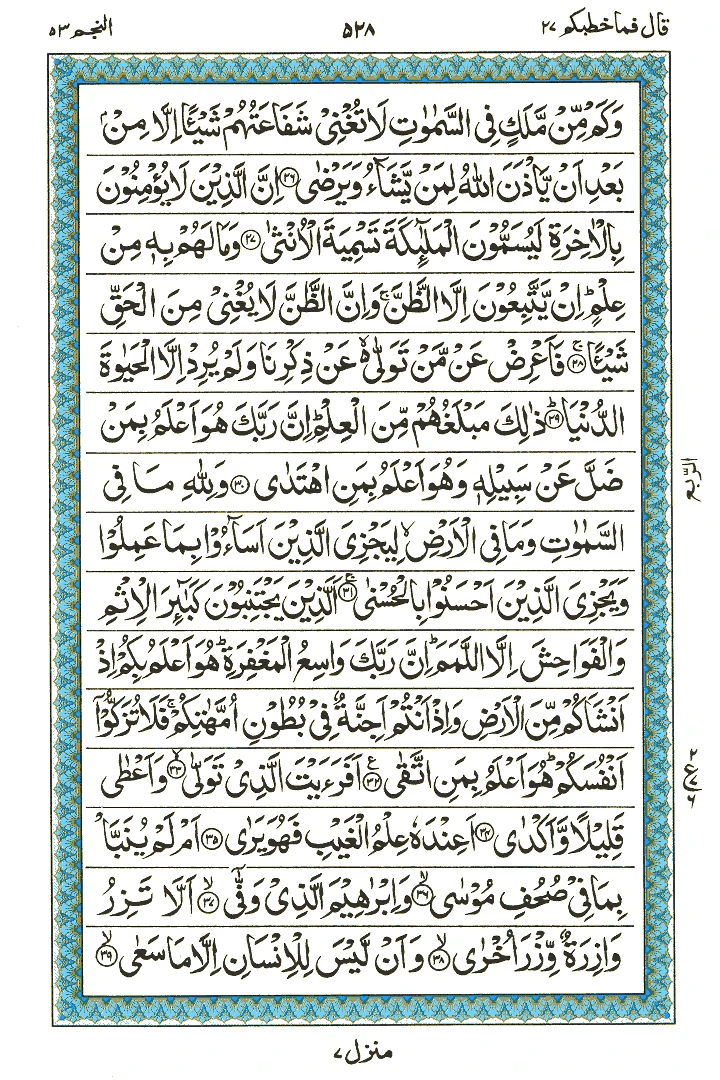 قال فماخطبكم ٢٧
٥٢٨
النجم ٥٣
وَكَمْ مِّنْ مَّلَكٍ فِى السَّمٰوٰتِ لَا تُغْنِىْ شَفَاعَتُهُمْ شَيْـًٔا اِلَّا مِنْۢ
بَعْدِ اَنْ يَّاْذَنَ اللّٰهُ لِمَنْ يَّشَآءُ وَيَرْضٰى ۟۲۶ اِنَّ الَّذِيْنَ لَا يُؤْمِنُوْنَ
بِالْاٰخِرَةِ لَيُسَمُّوْنَ الْمَلٰٓئِكَةَ تَسْمِيَةَ الْاُنْثٰى ۟۲۷ وَمَا لَهُمْ بِهٖ مِنْ
عِلْمٍ ؕ اِنْ يَّتَّبِعُوْنَ اِلَّا الظَّنَّ ۚ وَاِنَّ الظَّنَّ لَا يُغْنِىْ مِنَ الْحَقِّ
شَيْـًٔا ۚ۟۲۸ فَاَعْرِضْ عَنْ مَّنْ تَوَلّٰى ۙ۬ عَنْ ذِكْرِنَا وَلَمْ يُرِدْ اِلَّا الْحَيٰوةَ
الدُّنْيَا ؕ۟۲۹ ذٰلِكَ مَبْلَغُهُمْ مِّنَ الْعِلْمِ ؕ اِنَّ رَبَّكَ هُوَ اَعْلَمُ بِمَنْ
ضَلَّ عَنْ سَبِيْلِهٖ وَهُوَ اَعْلَمُ بِمَنِ اهْتَدٰى ۟۳۰ وَلِلّٰهِ مَا فِى
السَّمٰوٰتِ وَمَا فِى الْاَرْضِ ۙ لِيَجْزِىَ الَّذِيْنَ اَسَآءُوْا بِمَا عَمِلُوْا
وَيَجْزِىَ الَّذِيْنَ اَحْسَنُوْا بِالْحُسْنٰى ۚ۟۳۱ اَلَّذِيْنَ يَجْتَنِبُوْنَ كَبٰٓئِرَ الْاِثْمِ
وَالْفَوَاحِشَ اِلَّا اللَّمَمَ ؕ اِنَّ رَبَّكَ وَاسِعُ الْمَغْفِرَةِ ؕ هُوَ اَعْلَمُ بِكُمْ اِذْ
اَنْشَاَكُمْ مِّنَ الْاَرْضِ وَاِذْ اَنْتُمْ اَجِنَّةٌ فِىْ بُطُوْنِ اُمَّهٰتِكُمْ ۚ فَلَا تُزَكُّوْۤا
اَنْفُسَكُمْ ؕ هُوَ اَعْلَمُ بِمَنِ اتَّقٰى ۟۳۲ اَفَرَءَيْتَ الَّذِىْ تَوَلّٰى ۙ۟۳۳ وَاَعْطٰى
قَلِيْلًا وَّاَكْدٰى ۟۳۴ اَعِنْدَهٗ عِلْمُ الْغَيْبِ فَهُوَ يَرٰى ۟۳۵ اَمْ لَمْ يُنَبَّاْ
بِمَا فِىْ صُحُفِ مُوْسٰى ۙ۟۳۶ وَاِبْرٰهِيْمَ الَّذِىْ وَفّٰٓى ۙ۟۳۷ اَلَّا تَزِرُ
وَازِرَةٌ وِّزْرَ اُخْرٰى ۙ۟۳۸ وَاَنْ لَّيْسَ لِلْاِنْسَانِ اِلَّا مَا سَعٰى ۙ۟۳۹
الرّبع
٢
ع
٦
منزل ٧